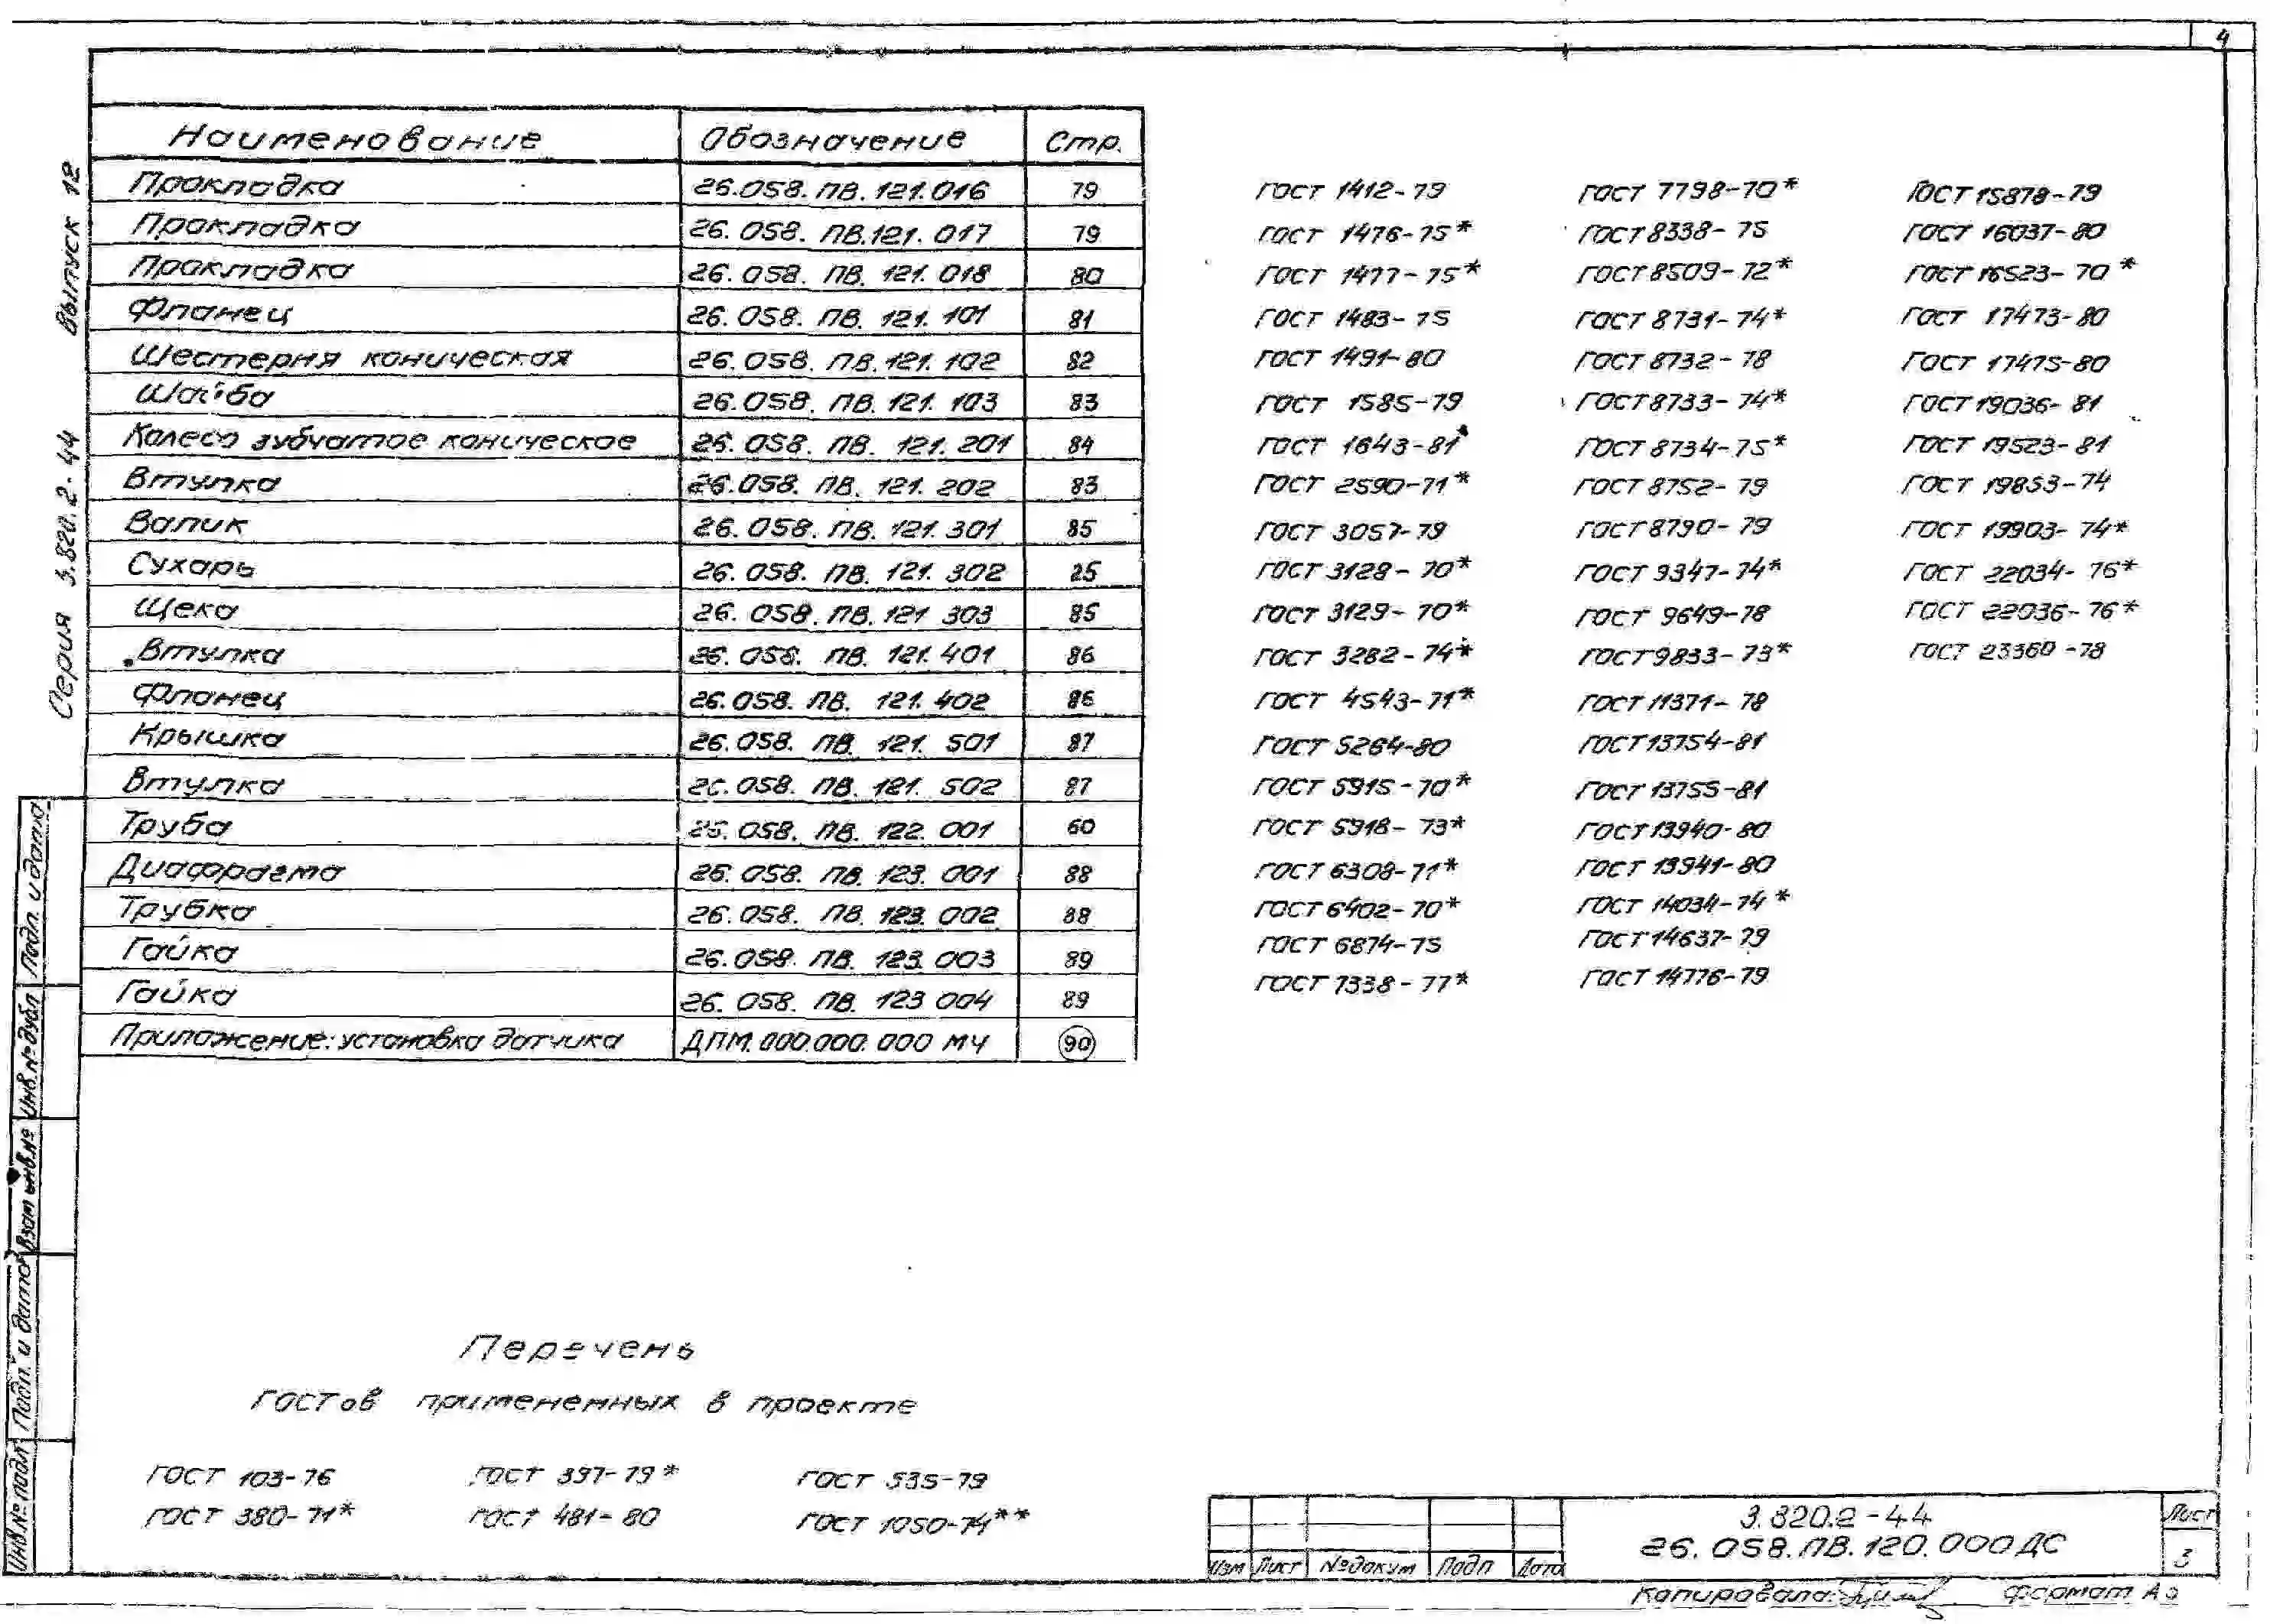 4
Серия 3.820.2-44 Выпуск 12
Наименование Обозначение Стр.
Прокладка 26.058.ПВ.121.016 79
Прокладка 26.058.ПВ.121.017 79
Прокладка 26.058.ПВ.121.018 80
Фланец 26.058.ПВ.121.101 81
Шестерня коническая 26.058.ПВ.121.102 82
Шайба 26.058.ПВ.121.103 83
Колесо зубчатое коническое 26.058.ПВ.121.201 84
Втулка 26.058.ПВ.121.202 83
Валик 26.058.ПВ.121.301 85
Сухарь 26.058.ПВ.121.302 25
Щека 26.058.ПВ.121 303 85
Втулка 26.058.ПВ.121.401 86
Фланец 26.058.ПВ.121.402 86
Крышка 26.058.ПВ.121.501 87
Втулка 26.058.ПВ.121.502 87
Труба 26.058.ПВ.122.001 60
Диафрагма 26.058.ПВ.123.001 88
Трубка 26.058.ПВ.123.002 88
Гайка 26.058.ПВ.123.003 89
Гайка 26.058.ПВ.123 004 89
Приложение: установка датчика ДПМ.000.000.000 МЧ 90
Перечень
ГОСТов примененных в проекте
ГОСТ 103-76 ГОСТ 397-79* ГОСТ 535-79
ГОСТ 380-71* ГОСТ 481-80 ГОСТ 1050-74**
ГОСТ 1412-79 ГОСТ 7798-70* ГОСТ 15878-79
ГОСТ 1476-75* ГОСТ 8338-75 ГОСТ 16037-80
ГОСТ 1477-75* ГОСТ 8509-72* ГОСТ 16523-70*
ГОСТ 1483-75 ГОСТ 8731-74* ГОСТ 17473-80
ГОСТ 1491-80 ГОСТ 8732-78 ГОСТ 17475-80
ГОСТ 1585-79 ГОСТ 8733-74* ГОСТ 19036-81
ГОСТ 1643-81* ГОСТ 8734-75* ГОСТ 19523-81
ГОСТ 2590-71* ГОСТ 8752-79 ГОСТ 19853-74
ГОСТ 3057-79 ГОСТ 8790-79 ГОСТ 19903-74*
ГОСТ 3128-70* ГОСТ 9347-74* ГОСТ 22034-76*
ГОСТ 3129-70* ГОСТ 9649-78 ГОСТ 22036-76*
ГОСТ 3282-74* ГОСТ 9833-73* ГОСТ 23360-78
ГОСТ 4543-71* ГОСТ 11371-78
ГОСТ 5264-80 ГОСТ 13754-81
ГОСТ 5915-70* ГОСТ 13755-81
ГОСТ 5918-73* ГОСТ 13940-80
ГОСТ 6308-71* ГОСТ 13941-80
ГОСТ 6402-70* ГОСТ 14034-74*
ГОСТ 6874-75 ГОСТ 14637-79
ГОСТ 7338-77* ГОСТ 14776-79
Инв.№ подл Подп. и дата Взам инв.№ Инв.№ дубл Подп. и дата
Изм Лист №докум Подп Дата
3.820.2-44
26.058.ПВ.120.000ДС
Лист
3
Копировала: Формат А3